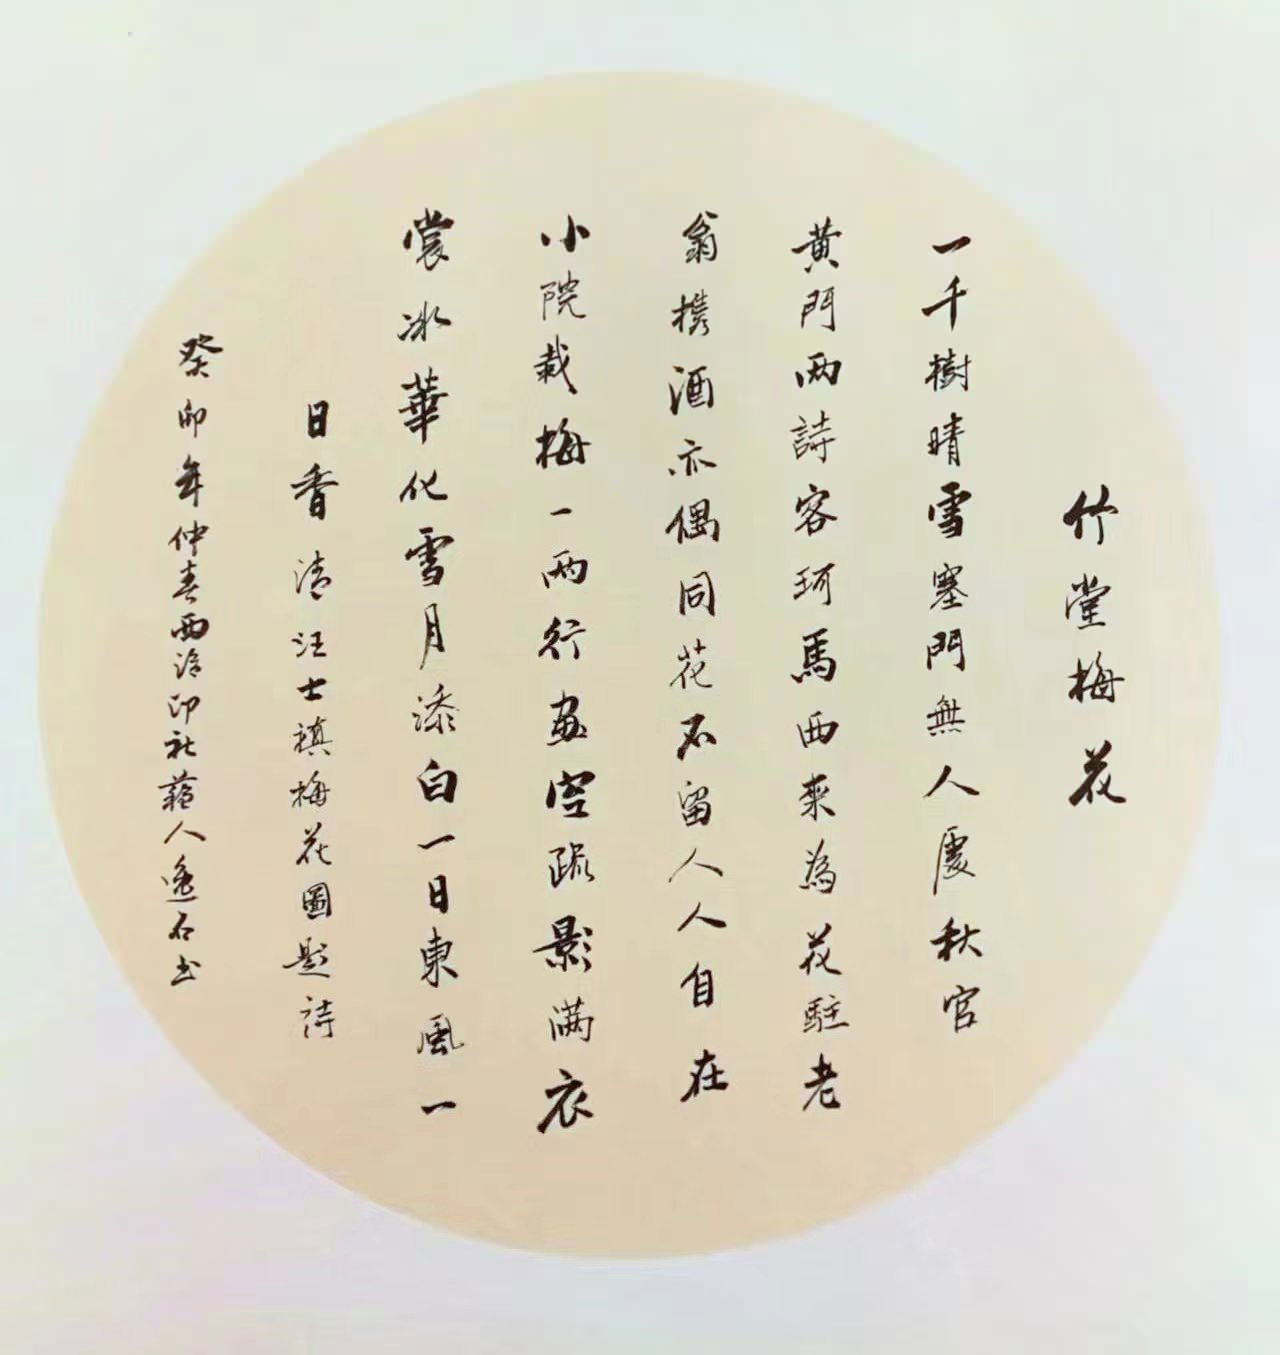 竹堂梅花
一千樹晴雪塞門無人處秋官
黃門两詩客珂馬西来為花駐老
翁携酒亦偶同花不留人人自在
小院栽梅一两行画空疏影满衣
裳冰華化雪月添白一日東風一
日香清汪士禛梅花圖題诗
癸卯年仲春西泠印社藝人逸石书